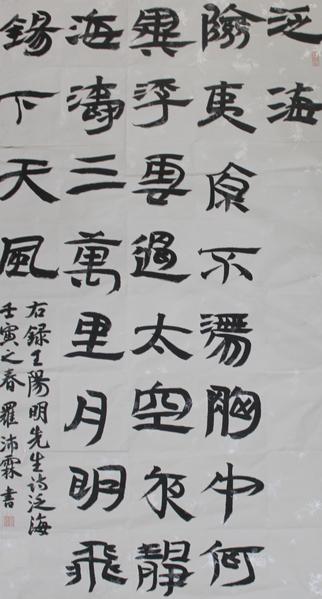 泛海
險夷原不滯胸中何
異浮雲過太空夜靜
海濤三萬里月明飛
錫下天風
右録王陽明先生诗泛海
壬寅之春 羅沛霖書